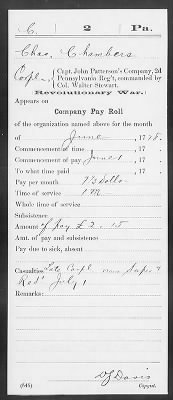 C. 2 Pa.
Chas. Chambers
Corpl, Capt. John Patterson's Company, 2d
Pennsylvania Reg't, commanded by
Col. Walter Stewart.
Revolutionary War.
Appears on
Company Pay Roll
of the organization named above for the month
of June, 1778.
Commencement of time, 17 .
Commencement of pay June 1, 17 .
To what time paid, 17 .
Pay per month 7⅓ Dolls
Time of service 1 Mo
Whole time of service
Subsistence
Amount of pay £2. 15
Amt. of pay and subsistence
Pay due to sick, absent
Casualties Late Corpl now
Red July 1
Remarks:
(645)
Copyist.